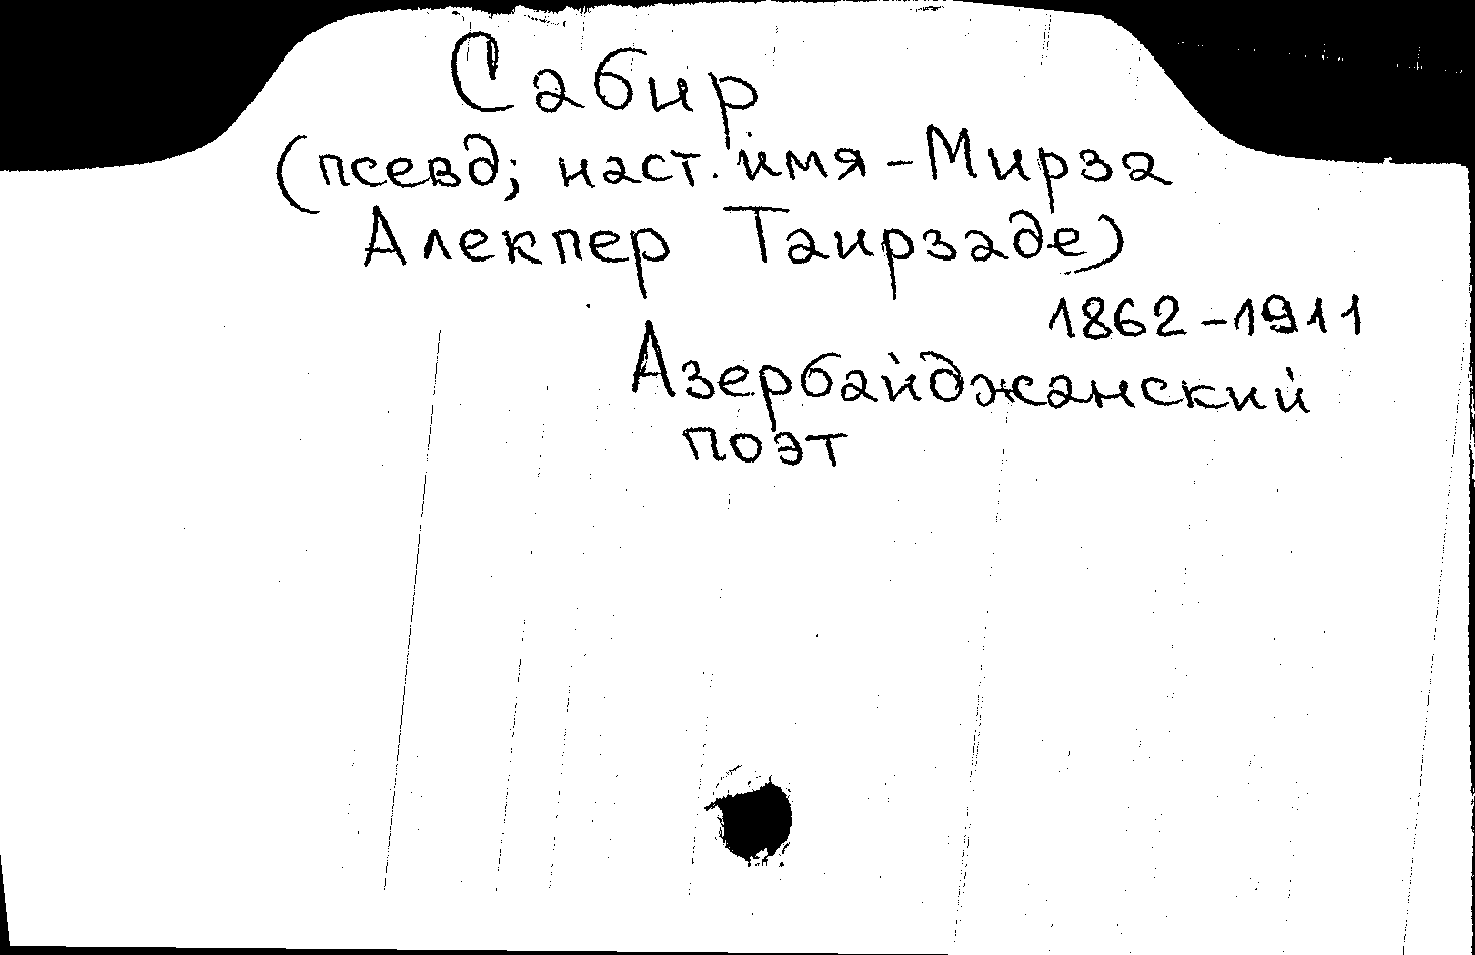 Сабир
(псевд; наст. имя - Мирза
Алекпер Таирзаде)
1862-1911
Азербайджанский
поэт